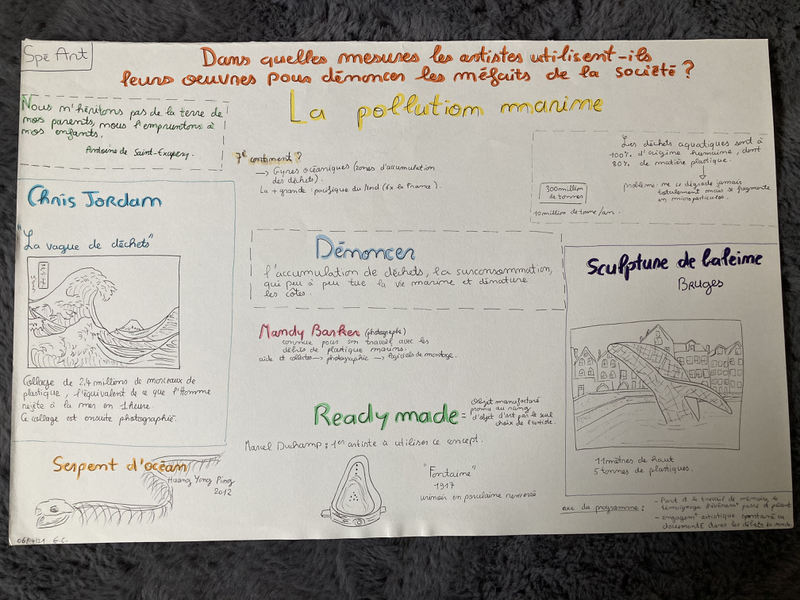 Spé Art
Dans quelles mesures les artistes utilisent-ils
leurs oeuvres pour dénoncer les méfaits de la société ?
La pollution marine
Nous n'héritons pas de la terre de
nos parents, nous l'empruntons à
nos enfants.
Antoine de Saint-Exupéry.
7e continent ?
→ Gyres océaniques (zones d'accumulation
des déchets)
La + grande : pacifique du Nord (6x la France).
Les déchets aquatiques sont à
100% d'origine humaine, dont
80% de matière plastique.
↓
problème: ne se dégrade jamais
totalement mais se fragmente
en microparticules.
300 million
de tonnes
10 million de tonne/an.
Chris Jordan
"La vague de déchets"
Collage de 2,4 millions de morceaux de
plastique, l'équivalent de ce que l'Homme
rejete à la mer en 1 heure
Ce collage est ensuite photographié.
Dénoncer
l'accumulation de déchets, la surconsommation,
qui peu à peu tue la vie marine et dénature
les côtes.
Mandy Barker (photographe)
connue pour son travail avec les
débris de plastique marins.
aide et collecte → photographie → logiciels de montage.
Sculpture de baleine
Bruges
11 mètres de haut
5 tonnes de plastiques.
Ready made = Objet manufacturé
promu au rang
d'objet d'art par le seul
choix de l'artiste.
Marcel Duchamp : 1er artiste à utiliser ce concept.
"Fontaine"
1917
urinoir en porcelaine renversé
Serpent d'océan
Huang Yong Ping
2012
axe du programme :
- l'art & le travail de mémoire, le
témoignage d'évènemt passé et présent
- engagemt artistique spontané ou
documenté dans les débats du monde
E.C.